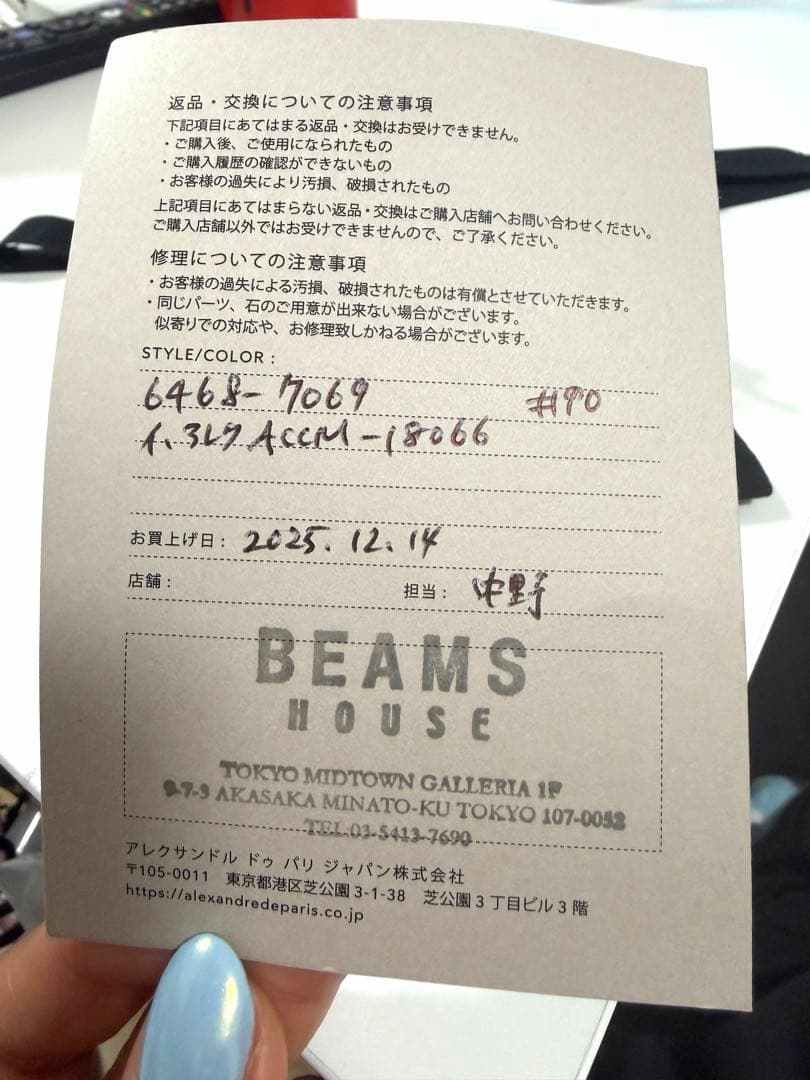 返品・交換についての注意事項
下記項目にあてはまる返品・交換はお受けできません。
・ご購入後、ご使用になられたもの
・ご購入履歴の確認ができないもの
・お客様の過失により汚損、破損されたもの
上記項目にあてはまらない返品・交換はご購入店舗へお問い合わせください。
ご購入店舗以外ではお受けできませんので、ご了承ください。
修理についての注意事項
・お客様の過失による汚損、破損されたものは有償とさせていただきます。
・同じパーツ、石のご用意が出来ない場合がございます。
似寄りでの対応や、お修理致しかねる場合がございます。
STYLE/COLOR :
6468-7069 #90
ACCM-18066
お買上げ日: 2025.12.14
店舗: 担当: 中野
BEAMS
HOUSE
TOKYO MIDTOWN GALLERIA 1F
9-7-3 AKASAKA MINATO-KU TOKYO 107-0052
TEL.03-5413-7690
アレクサンドル ドゥ パリ ジャパン株式会社
〒105-0011 東京都港区芝公園3-1-38 芝公園3丁目ビル3階
https://alexandredeparis.co.jp